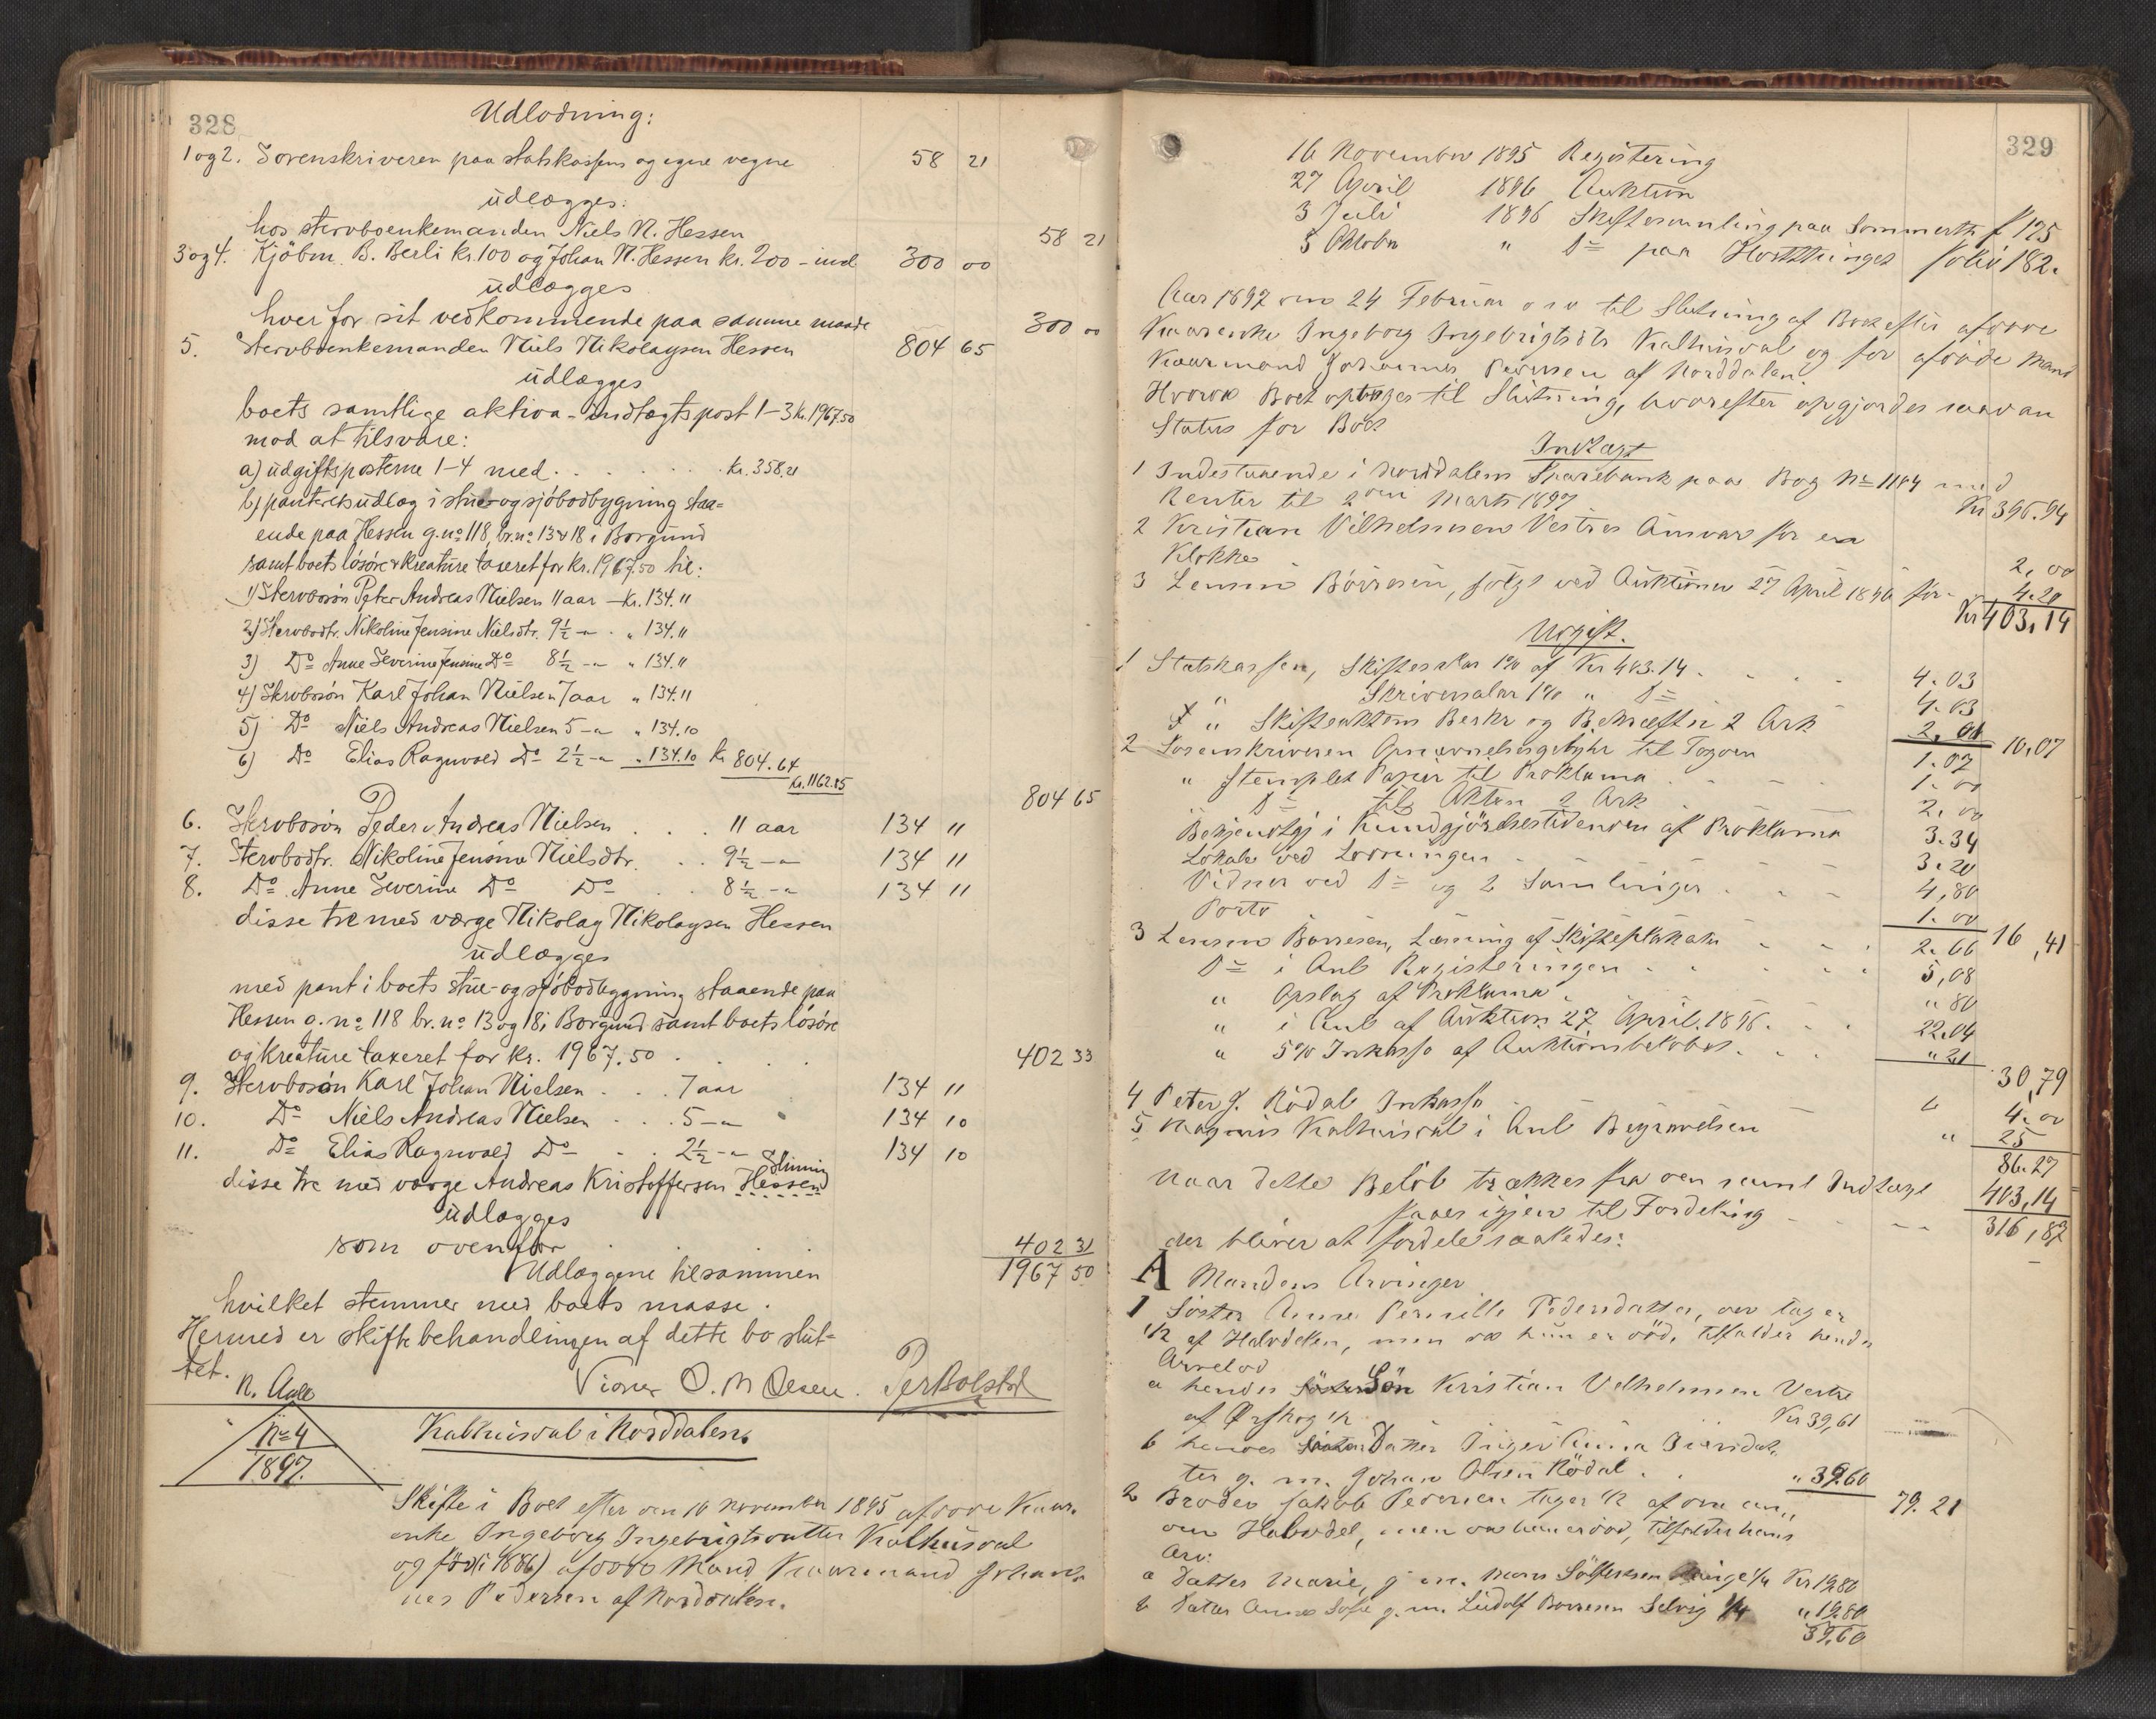 328
Udlodning:
1 og 2. Sorenskriveren paa statskassens og egne vegne 58 21
udlægges:
hos stervboenkemanden Niels N. Hessen 58 21
3 og 4. Kjöbm. B. Berli kr. 100 og Johan N. Hessen kr. 200 - ind 300 00
udlægges
hver for sit vedkommende paa samme maade 300 00
5. Stervboenkemanden Niels Nikolaysen Hessen 804 65
udlægges
boets samtlige aktiva - indtægtspost 1-3 kr. 1967.50
mod at tilsvare:
a) udgiftsposterne 1-4 med . . . . . kr. 358.21
b) panteretsudlæg i stue- og sjöbodbygning staa=
ende paa Hessen g.no 118, br.no 13 & 18 i Borgund
samt boets lösöre & kreature taxeret for kr. 1967.50 til:
1) Stervbosön Peter Andreas Nielsen 11 aar - kr. 134.11
2) Stervbodtr. Nikoline Jensine Nielsdtr. 9½ -"- " 134.11
3) Do Anne Severine Jensine Do 8½ -"- " 134.11
4) Stervbosön Karl Johan Nielsen 7 aar " 134.11
5) Do Niels Andreas Nielsen 5 -"- " 134.10
6) Do Elias Ragnvald Do 2½ -"- " 134.10 kr 804.64
kr. 1162.85
804 65
6. Stervbosön Peder Andreas Nielsen . . . 11 aar 134 11
7. Stervbodtr. Nikoline Jensine Nielsdtr. . . 9½ -"- 134 11
8. Do Anne Severine Do Do . . 8½ -"- 134 11
disse tre med værge Nikolay Nikolaysen Hessen
udlægges
med pant i boets stue- og sjöbodbygning staaende paa
Hessen g.no 118 br.no 13 og 18 i Borgund samt boets lösöre
og kreature taxeret for kr. 1967.50 . . . 402 33
9. Stervbosön Karl Johan Nielsen . . . 7 aar 134 11
10. Do Niels Andreas Nielsen . . . 5 -"- 134 10
11. Do Elias Ragnvald Do . . 2½ -"- 134 10
Slinning
disse tre med værge Andreas Kristoffersen Hessen
udlægges
som ovenfor . . . 402 31
Udlæggene tilsammen 1967 50
hvilket stemmer med boets masse.
Hermed er skiftebehandlingen af dette bo slut=
tet.
N. Aall Vidner O. M Olsen. Per Bolstad
No 4
1897.
Kalhusdal i Norddalen.
Skifte i Boet efter den 16 November 1895 afdöde Kaar=
enke Ingeborg Ingebrigtsdatter Kalhusdal
og för (i 1886) afdöde Mand Kaarmand Johan=
nes Pedersen af Norddalen.
329
16 November 1895 Registering
27 April 1896 Auktion
3 Juli 1896 Skiftesamling paa Sommerth. f 125
5 Oktober " Do paa Höstthinget folio 182.
Aar 1897 den 24 Februar o s v til Slutning af Boet efter afdöde
Kaarenke Ingeborg Ingebrigtsdtr Kalhusdal og för afdöde Mand
Kaarmand Johannes Pedersen af Norddalen.
Hvorpaa Boet optoges til Slutning, hvorefter opgjordes saadan
Status for Boet
Indtægt
1 Indestaaende i Norddalens Sparebank paa Bog No 1184 med
Renter til 2den Marts 1897 Kr 396.94
2 Kristian Vilhelmsen Vestres Ansvar for en
Klokke 2,00
3 Lensm Börresen, solgt ved Auktionen 27 April 1896 for 4.20
Kr 403.14
Udgift.
1 Statskassen, Skiftesalær 1% af Kr 403.14 . . . . 4.03
" Skriversalær 1% " Do 4.03
" Skifteakten Beskr og Bekræfter 2 Ark 2.01 10,07
2 Sorenskriveren Opnævnelsesgebyhr til Tagven 1.07
" Stemplet Papir til Proklama . . . 1.00
Do til Akten 2 Ark 2.00
Bekjendtgj i Kundgjörelsestidenden af Proklama 3.34
Lokale ved Lodningen . . . 3.20
Vidner ved Do og 2 Samlinger . . . 4,80
Porto 1.00 16,41
3 Lensm Börresen, Læsning af Skifteplakaten . . . 2.66
Do i Anl Registeringen . . . 5,08
" Opslag af Proklama . " 80
" i Anl af Auktion 27 April. 1896. . . . 22.04
" 5% Inkasso af Auktionsbelöbet . . . " 21
30,79
4 Peter J. Rödal Inkasso 4.00
5 Magnus Kalhusdal i Anl Begravelsen " 25
86.27
Naar dette Belöb trækkes fra den samt Indtægt 403,14
haves igjen til Fordeling . . . 316,87
der bliver at fordele saaledes:
A Mandens Arvinger
1 Söster Anne Pernille Pedersdatter, der tager
1/2 af Halvdelen, men da hun er död, tilfalder hendes
Arvelod
a hendes Sön Kristian Velhelmsen Vestre
af Örskog 1/2 Kr 39,61
b hendes Datter Inger Anna Iversdat=
ter g. m. Johan Olsen Rödal . . " 39.60
79.21
2 Broder Jakob Pedersen tager 1/2 af den an=
den Halvdel, men da han er död, tilfalder hans
Arv:
a Datter Marie, g m. Mons Sölfestsen 1/4 Kr 19,80
b Datter Anne Sofie g. m. Ludolf Börresen Selvig 1/4 " 19.80
39,60